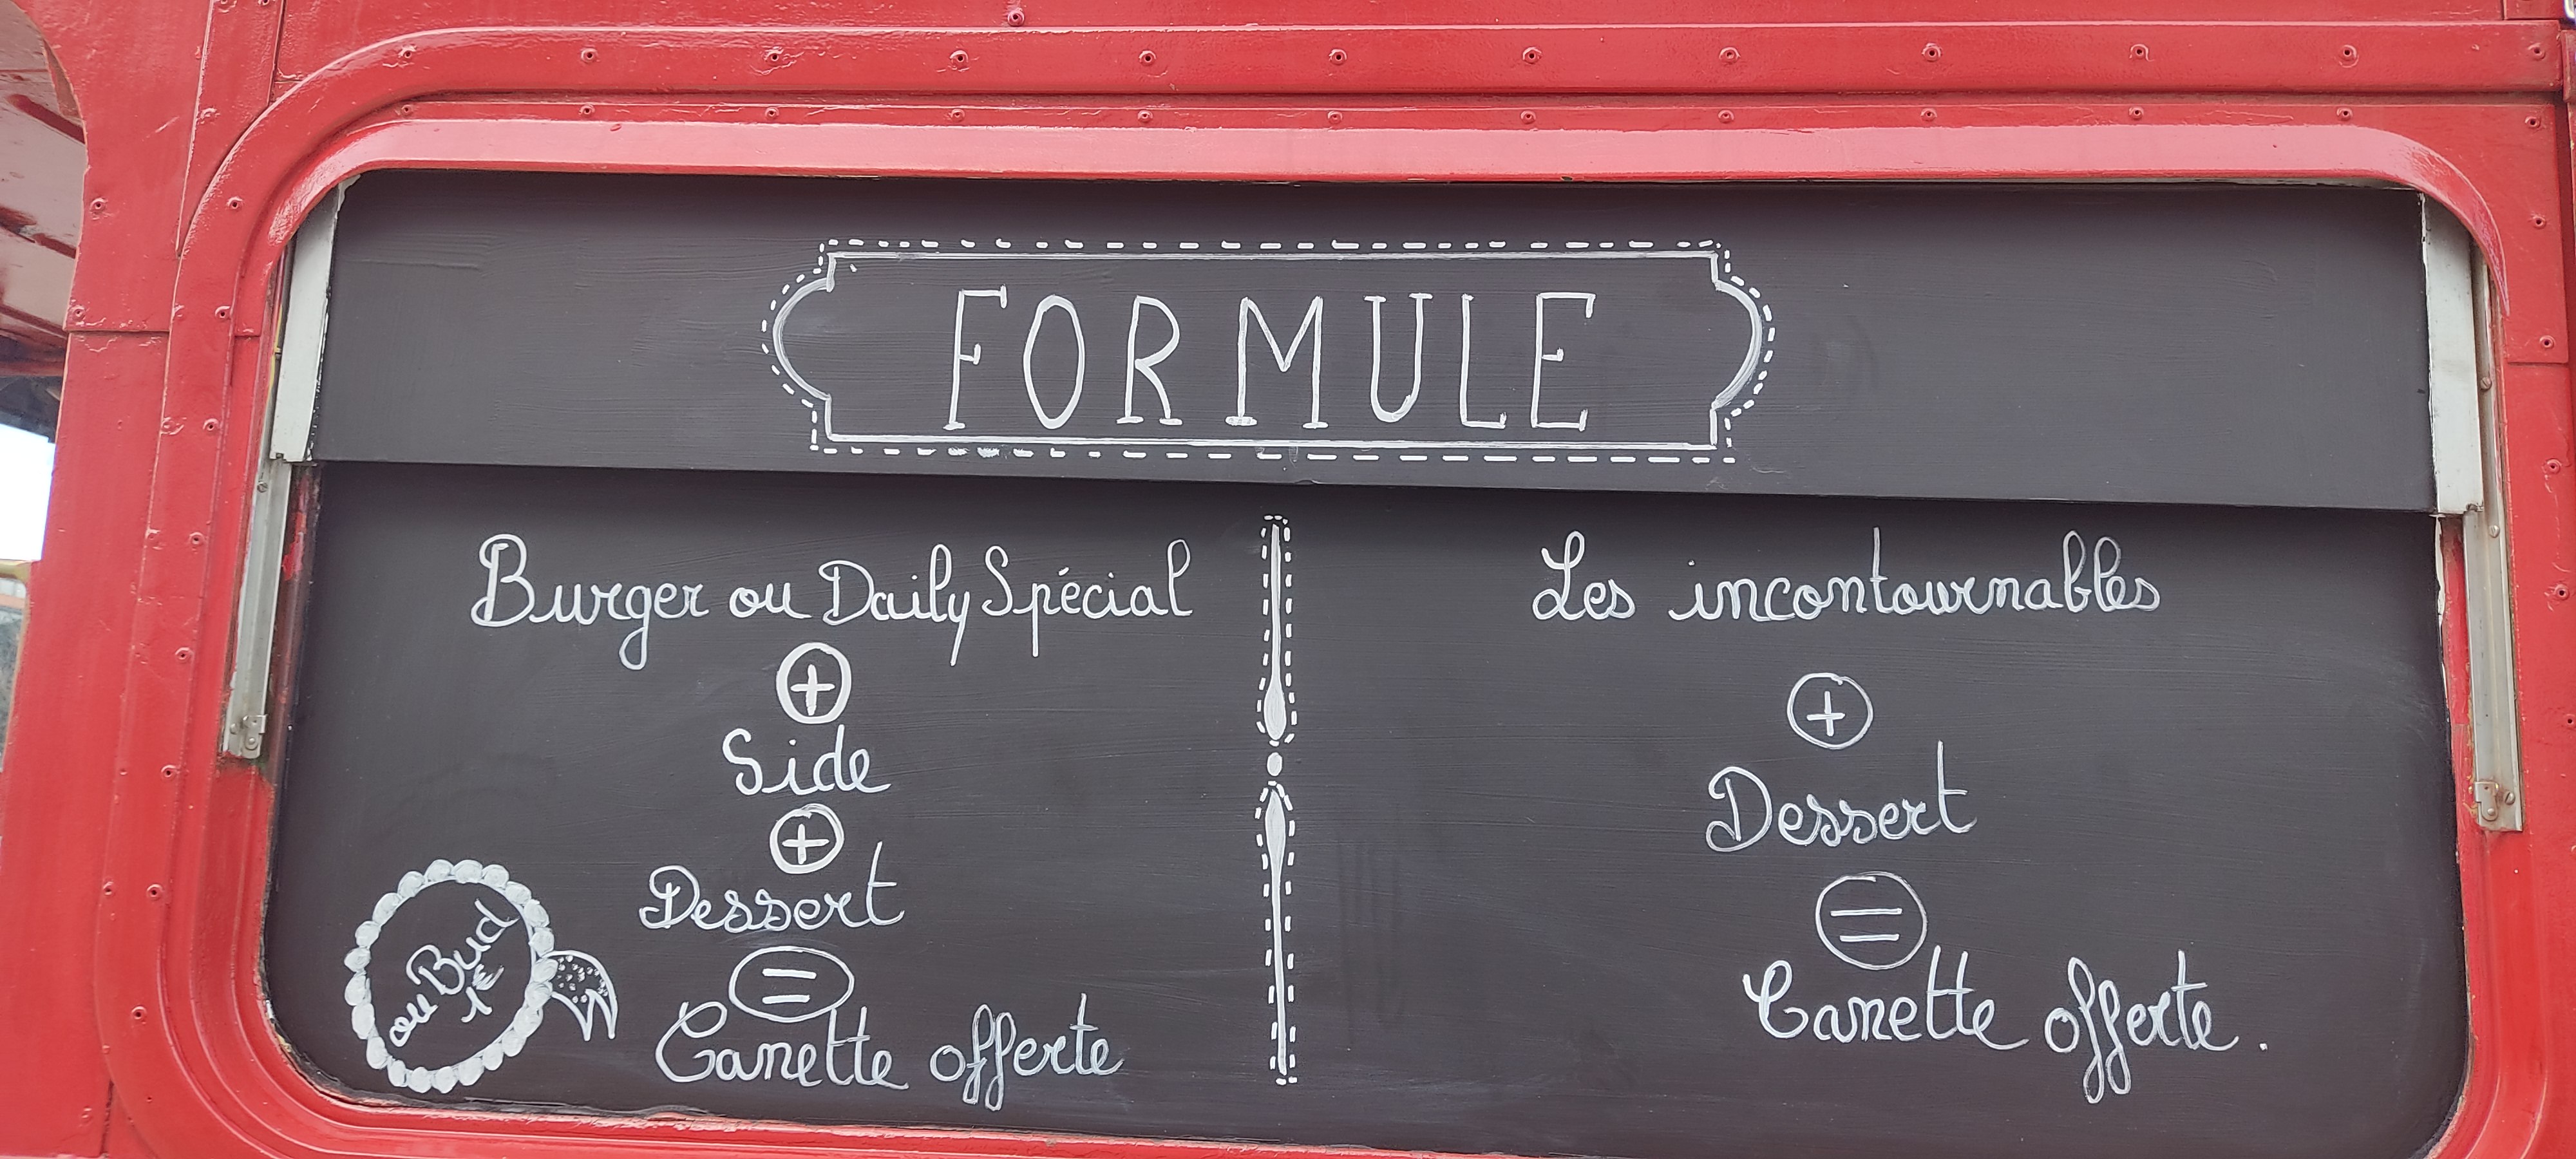 FORMULE
Burger ou Daily Spécial
+
Side
+
Dessert
=
Canette offerte
ou Bud
1€
Les incontournables
+
Dessert
=
Canette offerte.